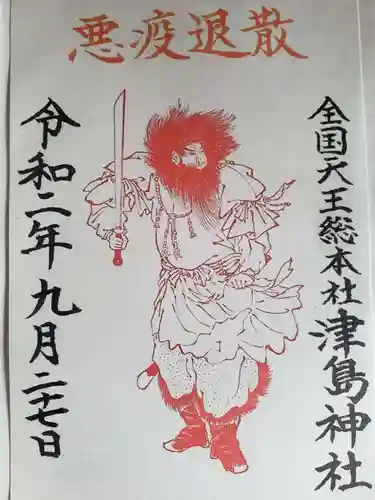 悪疫退散
全国天王総本社津島神社
令和二年九月二十七日